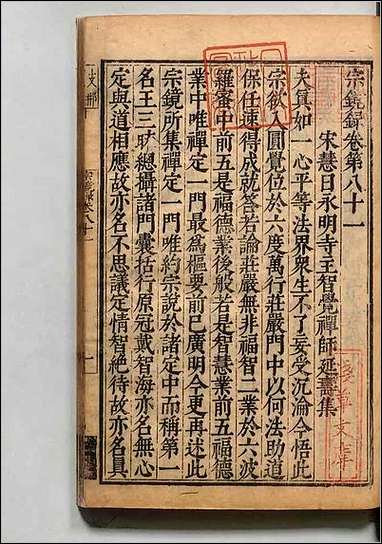 宗鏡錄卷第八十一
宋慧日永明寺主智覺禪師延壽集
夫真如一心平等法界衆生不了妄受沉淪今悟此
宗欲入圓覺位於六度萬行莊嚴門中以何法助道
保任速得成就答若論莊嚴無非福智二業於六波
羅蜜中前五是福德業後般若是智慧業前五福德
業中唯禪定一門最爲樞要前已廣明今更再述此
宗鏡所集禪定一門唯約宗說於諸定中而稱第一
名王三昧總攝諸門囊括行原冠戴智海亦名無心
定與道相應故亦名不思議定情智絕待故亦名真